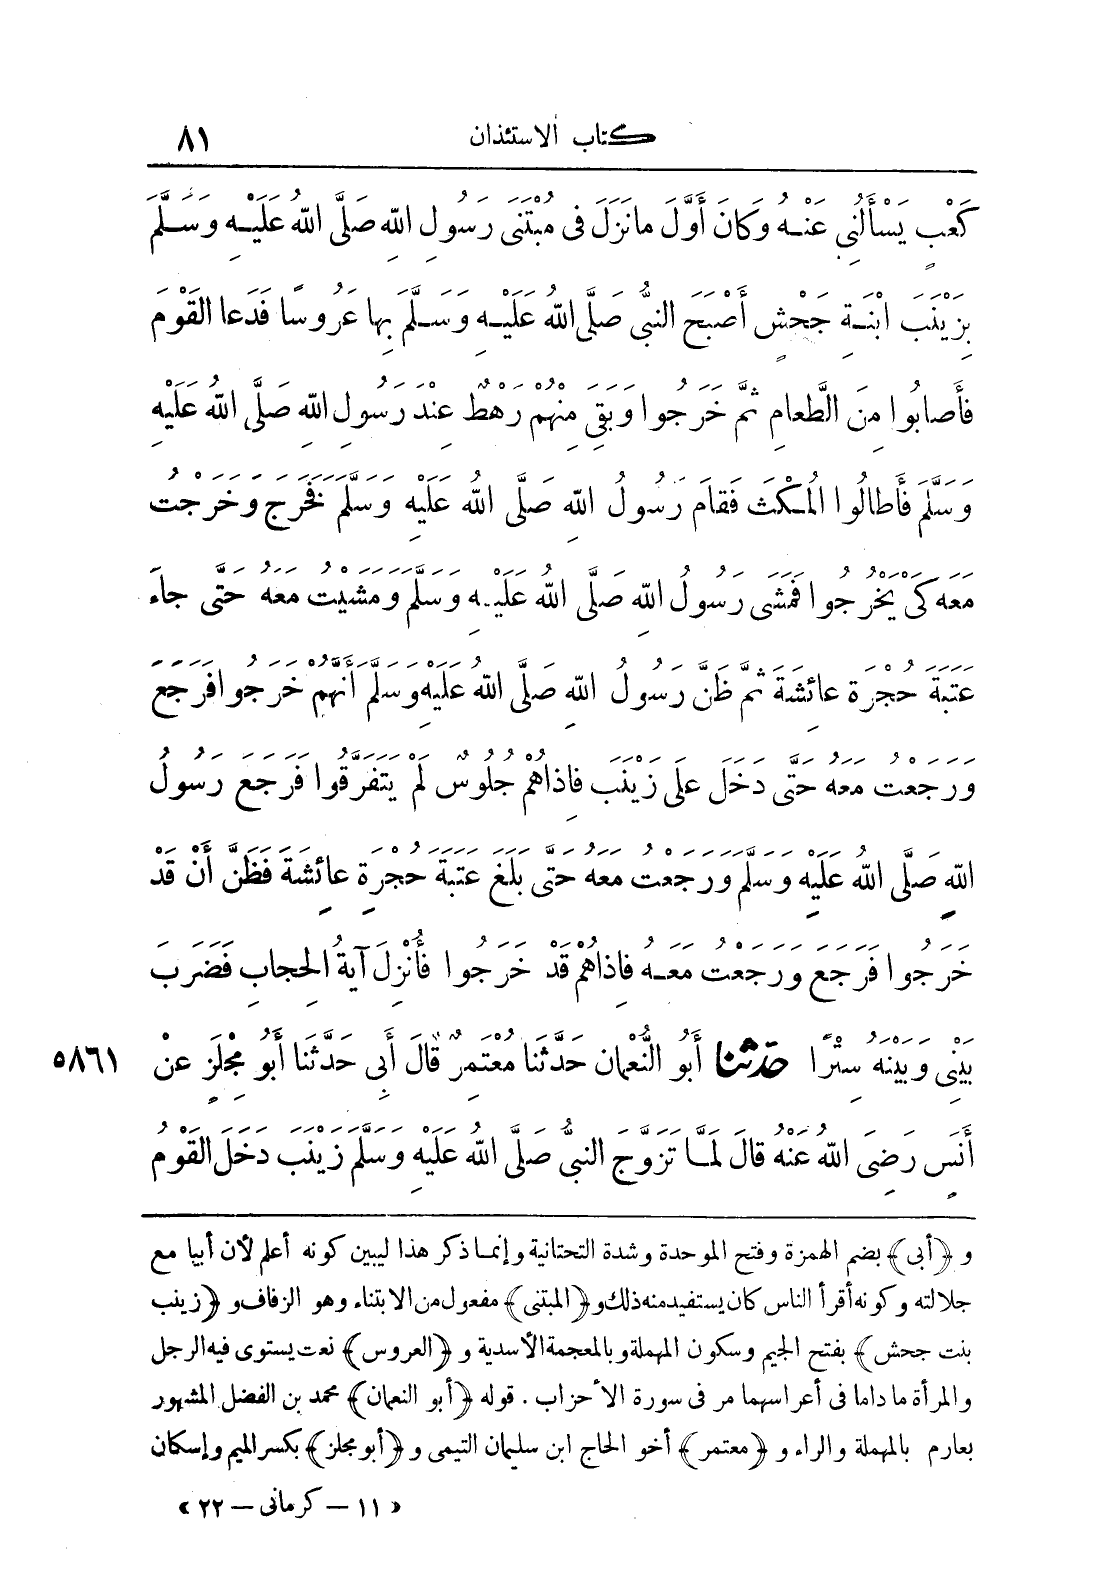 كتاب الاستئذان ٨١
كَعْبٍ يَسْأَلُنِي عَنْهُ وَكَانَ أَوَّلَ مَا نَزَلَ فِى مُبْتَنَى رَسُولِ اللهِ صَلَّى اللهُ عَلَيْهِ وَسَلَّمَ
بِزَيْنَبَ ابْنَةِ جَحْشٍ أَصْبَحَ النَّبِىُّ صَلَّى اللهُ عَلَيْهِ وَسَلَّمَ بِهَا عَرُوسًا فَدَعَا الْقَوْمَ
فَأَصَابُوا مِنَ الطَّعَامِ ثُمَّ خَرَجُوا وَبَقِىَ مِنْهُمْ رَهْطٌ عِنْدَ رَسُولِ اللهِ صَلَّى اللهُ عَلَيْهِ
وَسَلَّمَ فَأَطَالُوا الْمُكْثَ فَقَامَ رَسُولُ اللهِ صَلَّى اللهُ عَلَيْهِ وَسَلَّمَ فَخَرَجَ وَخَرَجْتُ
مَعَهُ كَىْ يَخْرُجُوا فَمَشَى رَسُولُ اللهِ صَلَّى اللهُ عَلَيْهِ وَسَلَّمَ وَمَشَيْتُ مَعَهُ حَتَّى جَاءَ
عَتَبَةَ حُجْرَةِ عَائِشَةَ ثُمَّ ظَنَّ رَسُولُ اللهِ صَلَّى اللهُ عَلَيْهِ وَسَلَّمَ أَنَّهُمْ خَرَجُوا فَرَجَعَ
وَرَجَعْتُ مَعَهُ حَتَّى دَخَلَ عَلَى زَيْنَبَ فَإِذَا هُمْ جُلُوسٌ لَمْ يَتَفَرَّقُوا فَرَجَعَ رَسُولُ
اللهِ صَلَّى اللهُ عَلَيْهِ وَسَلَّمَ وَرَجَعْتُ مَعَهُ حَتَّى بَلَغَ عَتَبَةَ حُجْرَةِ عَائِشَةَ فَظَنَّ أَنْ قَدْ
خَرَجُوا فَرَجَعَ وَرَجَعْتُ مَعَهُ فَإِذَا هُمْ قَدْ خَرَجُوا فَأُنْزِلَ آيَةُ الْحِجَابِ فَضَرَبَ
بَيْنِى وَبَيْنَهُ سِتْرًا حَدَّثَنَا أَبُو النُّعْمَانِ حَدَّثَنَا مُعْتَمِرٌ قَالَ أَبِى حَدَّثَنَا أَبُو مِجْلَزٍ عَنْ ٥٨٦١
أَنَسٍ رَضِىَ اللهُ عَنْهُ قَالَ لَمَّا تَزَوَّجَ النَّبِىُّ صَلَّى اللهُ عَلَيْهِ وَسَلَّمَ زَيْنَبَ دَخَلَ الْقَوْمُ
و ﴿أبى﴾ بضم الهمزة وفتح الموحدة وشدة التحتانية وإنما ذكر هذا ليبين كونه أعلم لأن أبيا مع
جلالته وكونه أقرأ الناس كان يستفيد منه ذلك و ﴿المبتنى﴾ مفعول من الابتناء وهو الزفاف و ﴿زينب
بنت جحش﴾ بفتح الجيم وسكون المهملة وبالمعجمة الأسدية و ﴿العروس﴾ نعت يستوى فيه الرجل
والمرأة ما داما فى أعراسهما مر فى سورة الأحزاب . قوله ﴿أبو النعمان﴾ محمد بن الفضل المشهور
بعارم بالمهملة والراء و ﴿معتمر﴾ أخو الحاج ابن سليمان التيمى و ﴿أبو مجلز﴾ بكسر الميم وإسكان
« ١١ – كرمانى – ٢٢ »